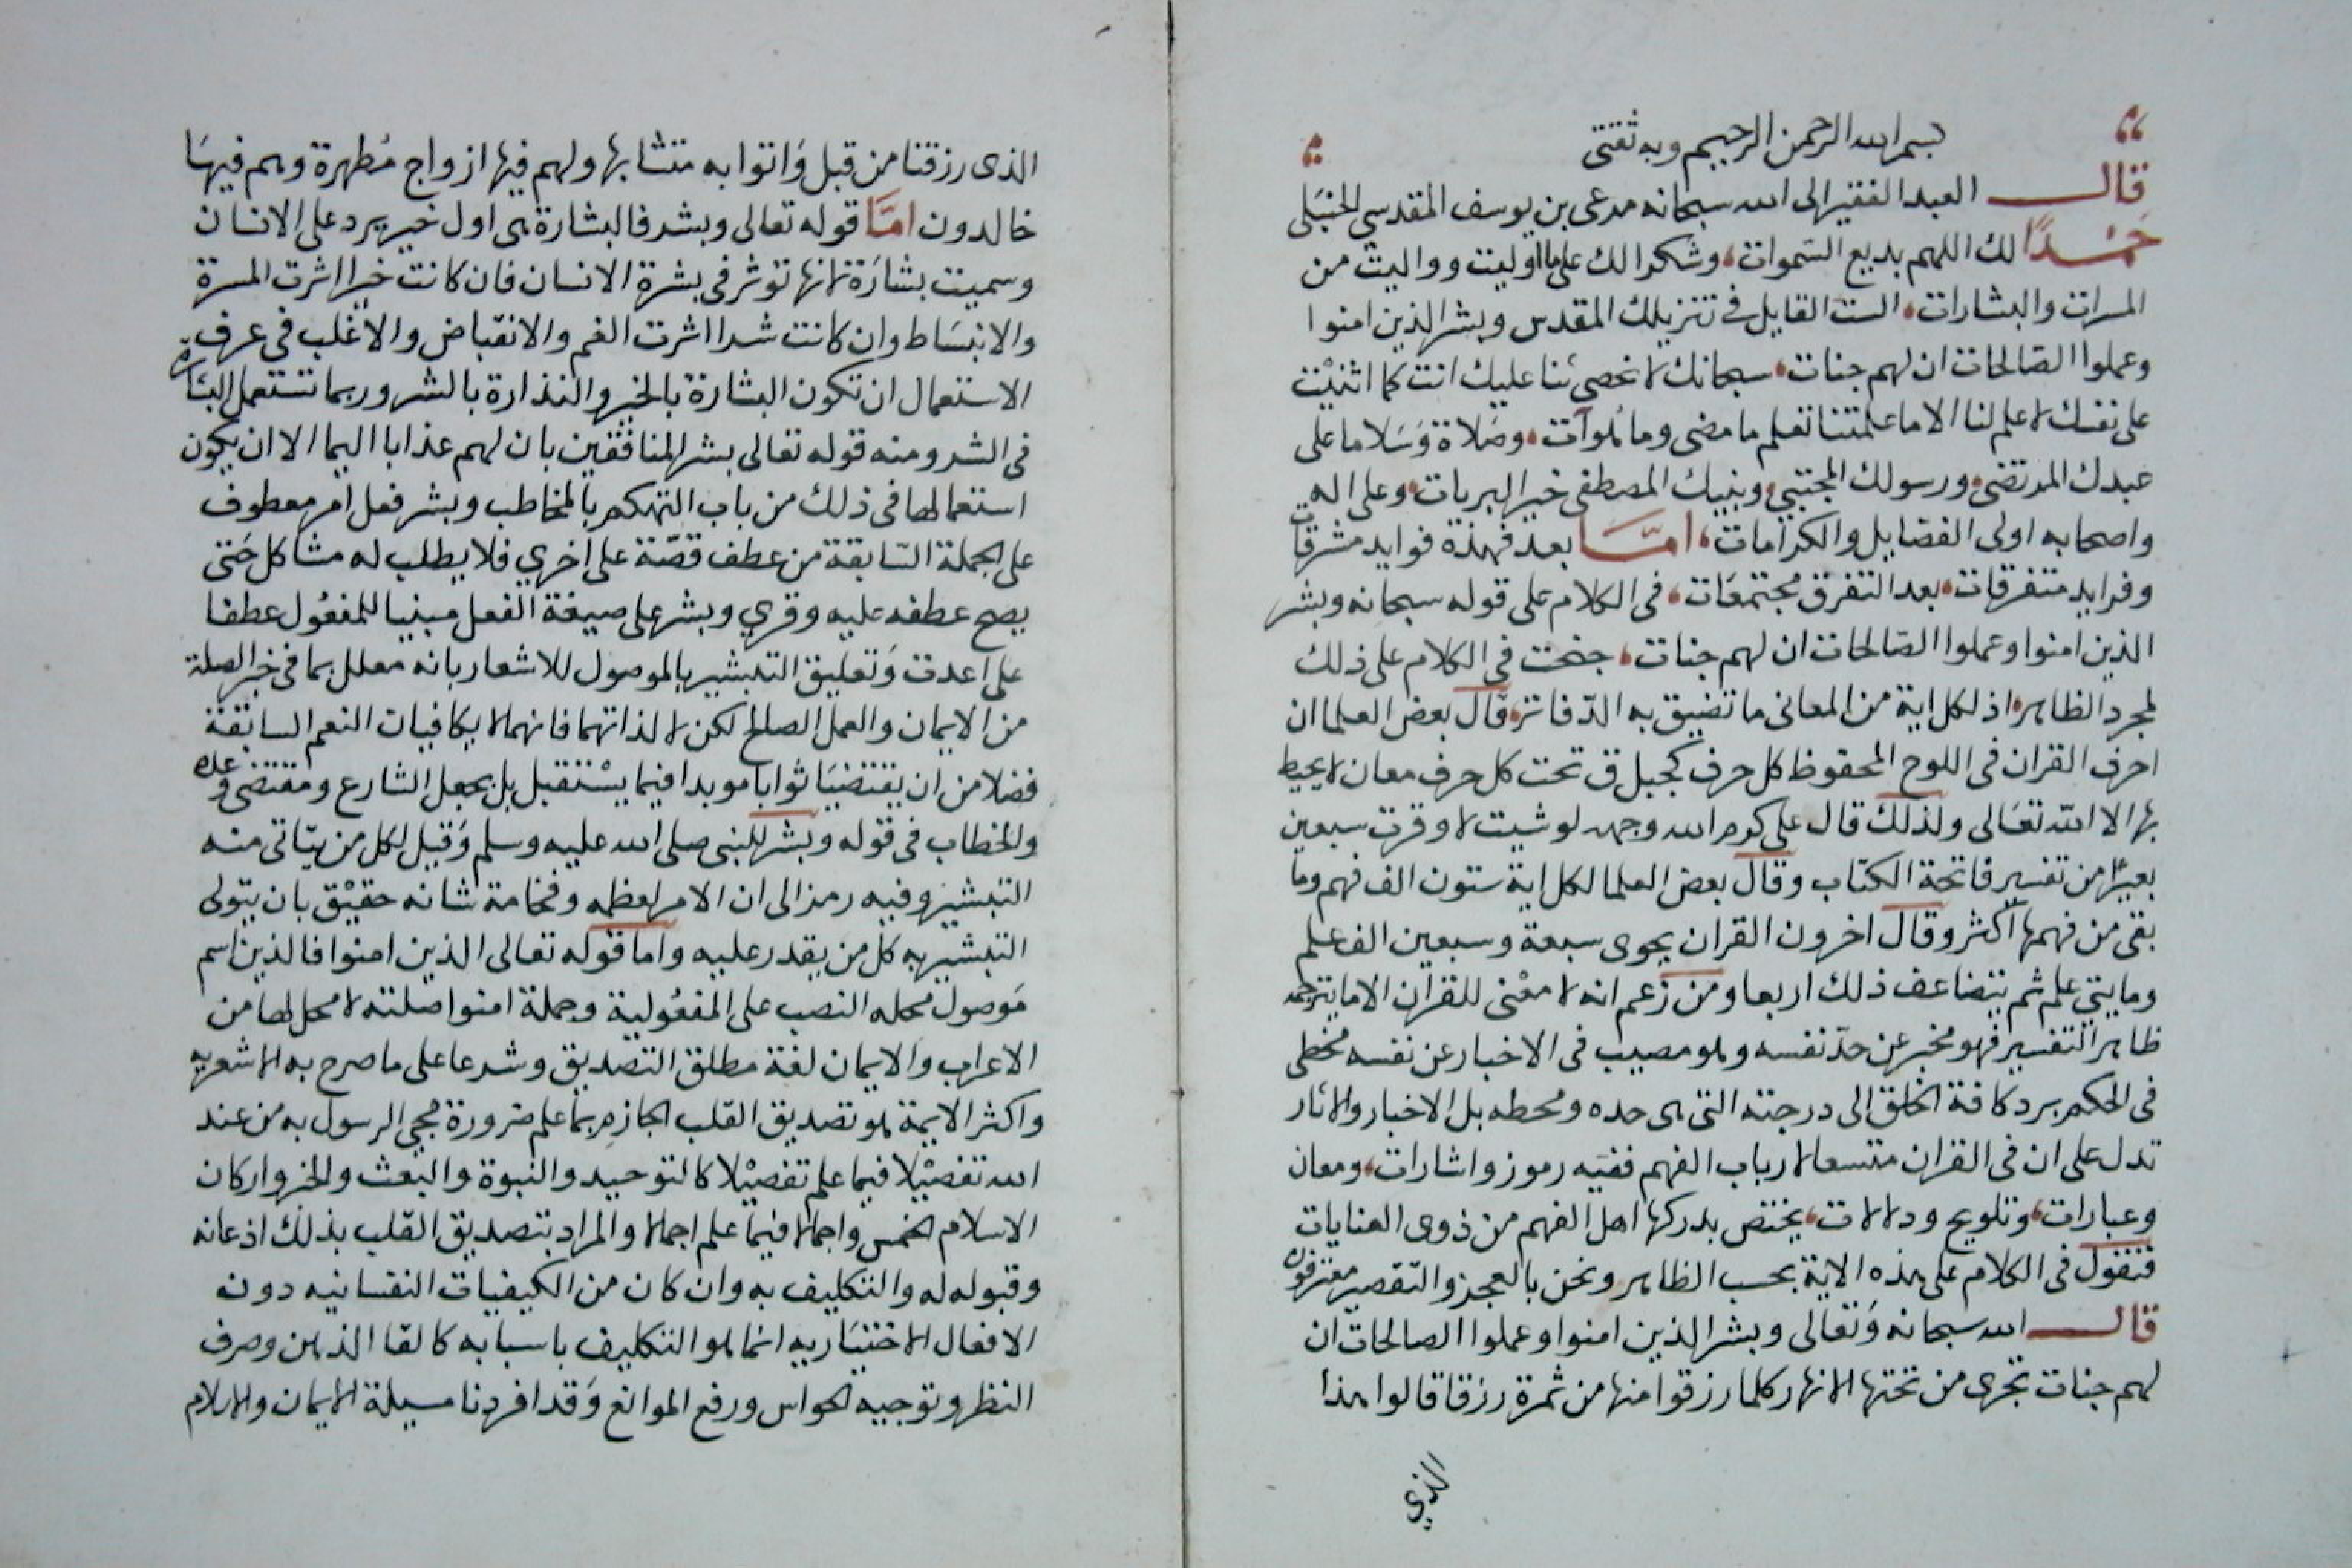 بسم الله الرحمن الرحيم وبه ثقتى
قال العبد الفقير الى الله سبحانه مرعى بن يوسف المقدسي الحنبلى
حمدًا لك اللهم بديع السموات، وشكرا لك على ما اوليت وواليت من
المسرات والبشارات، الست القايل في تنزيلك المقدس وبشر الذين امنوا
وعملوا الصالحات ان لهم جنات، سبحانك لا نحصى ثنا عليك انت كما اثنيت
على نفسك لا علم لنا الا ما علمتنا تعلم ما مضى وما هو آت، وصلاة وسلاما على
عبدك المرتضى، ورسولك المجتبى، ونبيك المصطفى خير البريات، وعلى اله
واصحابه اولى الفضايل والكرامات، امّا بعد فهذة فوايد مشرقات
وفرايد متفرقات، بعد التفرق مجتمعات، فى الكلام على قوله سبحانه وبشر
الذين امنوا وعملوا الصالحات ان لهم جنات، جنحت فى الكلام على ذلك
لمجرد الظاهر، اذ لكل اية من المعانى ما تضيق به الدفاتر، قال بعض العلما ان
احرف القران فى اللوح المحفوظ كل حرف كجبل ق تحت كل حرف معان لا يحيط
بها الا الله تعالى ولذلك قال على كرم الله وجهه لو شيت لاوقرت سبعين
بعيرًا من تفسير فاتحة الكتاب وقال بعض العلما لكل اية ستون الف فهم وما
بقى من فهمها اكثر وقال اخرون القران يحوى سبعة وسبعين الف علم
ومايتى علم ثم يتضاعف ذلك اربعا ومن زعم انه لا معنى للقرآن الا ما يترجمه
ظاهر التفسير فهو مخبر عن حدّ نفسه وهو مصيب فى الاخبار عن نفسه مخطى
فى الحكم برد كافة الخلق الى درجته التى هى حده ومحطه بل الاخبار والاثار
تدل على ان فى القران متسعا لارباب الفهم ففيه رموز واشارات، ومعان
وعبارات، وتلويح ودلالات، يختص بدركها اهل الفهم من ذوى العنايات
فنقول فى الكلام على هذه الاية بحسب الظاهر ونحن بالعجز والتقصير معترفون
قال الله سبحانه وتعالى وبشر الذين امنوا وعملوا الصالحات ان
لهم جنات تجرى من تحتها الانهار كلما رزقوا منها من ثمرة رزقا قالوا هذا
الذي
الذى رزقنا من قبل واتوا به متشابها ولهم فيها ازواج مطهرة وهم فيها
خالدون امّا قوله تعالى وبشر فالبشارة هى اول خبر يرد على الانسان
وسميت بشارة لانها توثر فى بشرة الانسان فان كانت خيرا اثرت المسرة
والانبساط وان كانت شرا اثرت الغم والانقباض والاغلب فى عرف
الاستعمال ان تكون البشارة بالخير والنذارة بالشر وربما تستعمل البشارة
فى الشر ومنه قوله تعالى بشر المنافقين بان لهم عذابا اليما الا ان يكون
استعمالها فى ذلك من باب التهكم بالمخاطب وبشر فعل امر معطوف
على الجملة السابقة من عطف قصّة على اخري فلا يطلب له مشاكل حتى
يصح عطفه عليه وقري وبشر على صيغة الفعل مبنيا للمفعول عطفا
على اعدت وتعليق التبشير بالموصول للاشعار بانه معلل بما فى خبر الصلة
من الايمان والعمل الصالح لكن لا لذاتهما فانهما لا يكافيان النعم السابقة
فضلا من ان يقتضيا ثوابا موبدا فيما يستقبل بل بجعل الشارع ومقتضى وعده
والخطاب فى قوله وبشر للنبى صلى الله عليه وسلم وقيل لكل من يتاتى منه
التبشير وفيه رمز الى ان الامر لعظمه وفخامة شانه حقيق بان يتولى
التبشير به كل من يقدر عليه واما قوله تعالى الذين امنوا فالذين اسم
موصول محله النصب على المفعولية وجملة امنوا صلته لا محل لها من
الاعراب والايمان لغة مطلق التصديق وشرعا على ما صرح به الاشعريه
واكثر الايمة هو تصديق القلب الجازم بما علم ضرورة مجى الرسول به من عند
الله تفصيلا فيما علم تفصيلا كالتوحيد والنبوة والبعث والجزا واركان
الاسلام الخمس واجمالا فيما علم اجمالا والمراد بتصديق القلب بذلك اذعانه
وقبوله له والتكليف به وان كان من الكيفيات النفسانيه دونه
الافعال الاختياريه انما هو التكليف باسبابه كالقا الذهن وصرف
النظر وتوجيه الحواس ورفع الموانع وقد افردنا مسيلة الايمان والاسلام